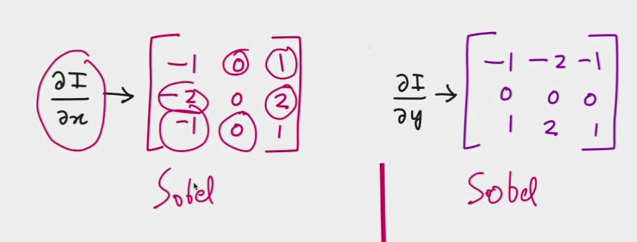 ∂I/∂x → [ -1 0 1
-2 0 2
-1 0 1 ]
Sobel
∂I/∂y → [ -1 -2 -1
0 0 0
1 2 1 ]
Sobel